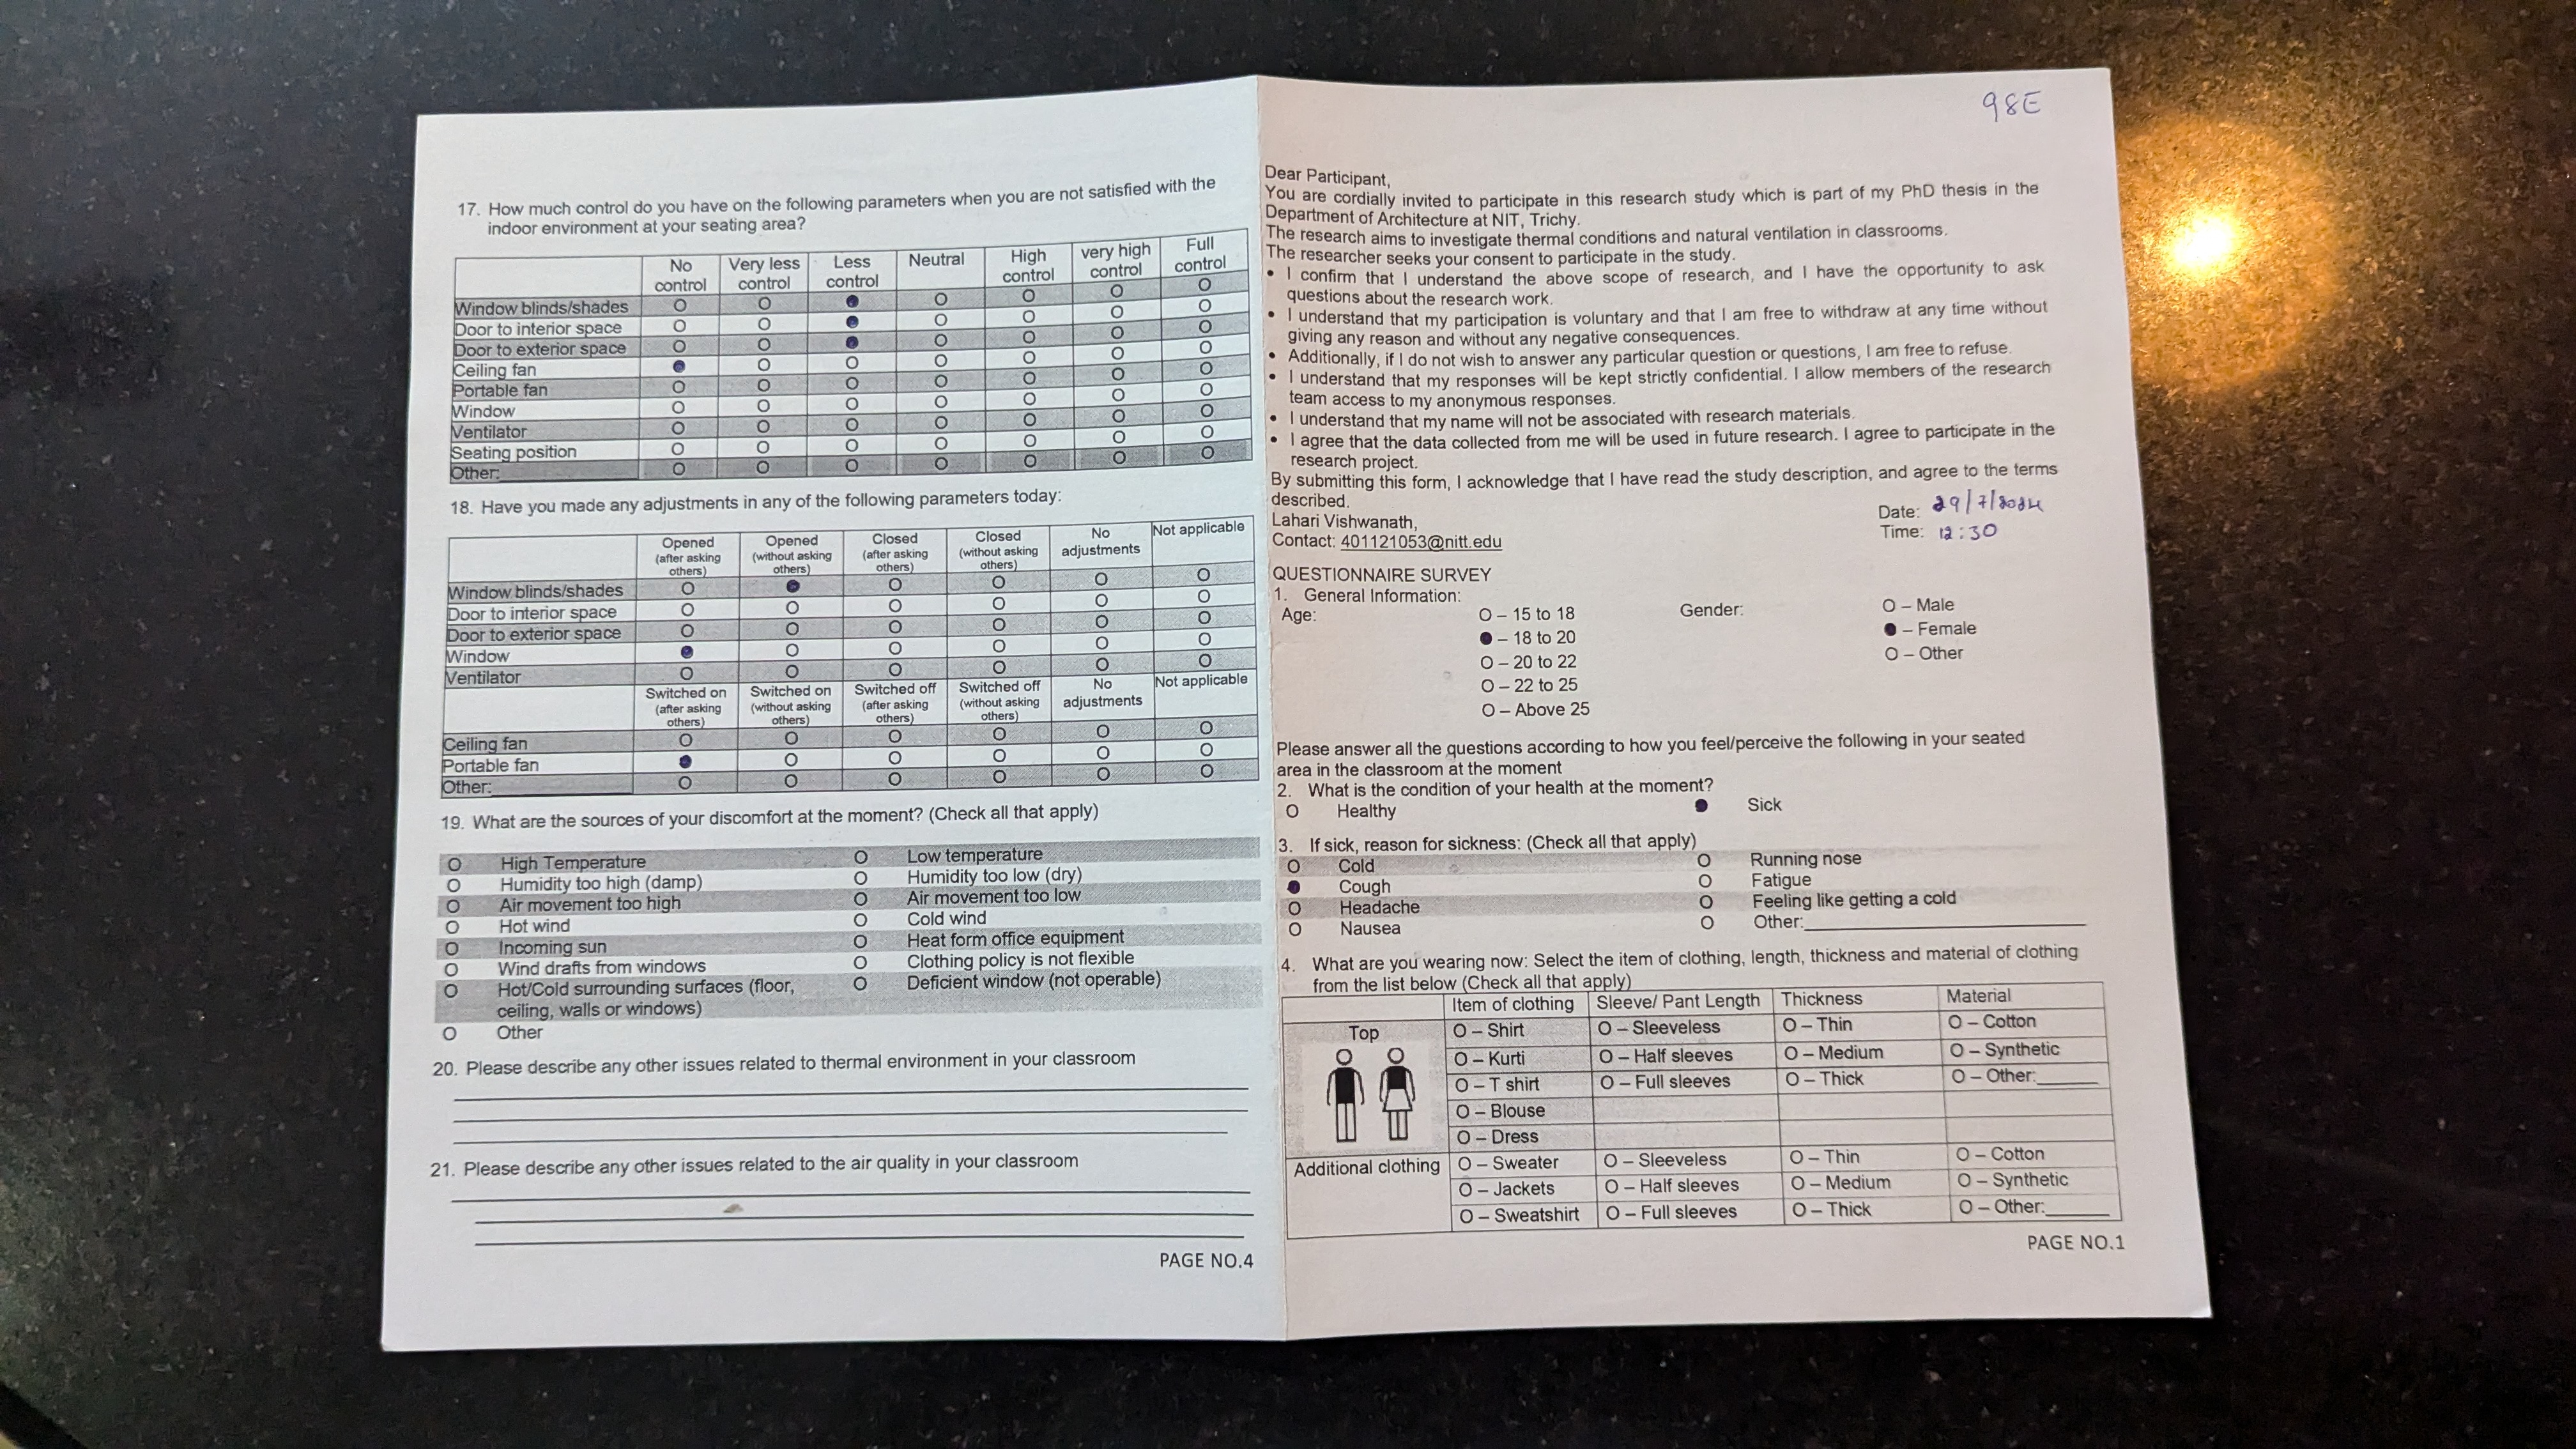 17. How much control do you have on the following parameters when you are not satisfied with the
indoor environment at your seating area?
No control Very less control Less control Neutral High control very high control Full control
Window blinds/shades O O ● O O O O
Door to interior space O O ● O O O O
Door to exterior space O O ● O O O O
Ceiling fan ● O O O O O O
Portable fan O O O O O O O
Window O O O O O O O
Ventilator O O O O O O O
Seating position O O O O O O O
Other: O O O O O O O
18. Have you made any adjustments in any of the following parameters today:
Opened (after asking others) Opened (without asking others) Closed (after asking others) Closed (without asking others) No adjustments Not applicable
Window blinds/shades O ● O O O O
Door to interior space O O O O O O
Door to exterior space O O O O O O
Window ● O O O O O
Ventilator O O O O O O
Switched on (after asking others) Switched on (without asking others) Switched off (after asking others) Switched off (without asking others) No adjustments Not applicable
Ceiling fan O O O O O O
Portable fan ● O O O O O
Other:________ O O O O O O
19. What are the sources of your discomfort at the moment? (Check all that apply)
O High Temperature O Low temperature
O Humidity too high (damp) O Humidity too low (dry)
O Air movement too high O Air movement too low
O Hot wind O Cold wind
O Incoming sun O Heat form office equipment
O Wind drafts from windows O Clothing policy is not flexible
O Hot/Cold surrounding surfaces (floor, O Deficient window (not operable)
ceiling, walls or windows)
O Other
20. Please describe any other issues related to thermal environment in your classroom
21. Please describe any other issues related to the air quality in your classroom
PAGE NO.4
98E
Dear Participant,
You are cordially invited to participate in this research study which is part of my PhD thesis in the
Department of Architecture at NIT, Trichy.
The research aims to investigate thermal conditions and natural ventilation in classrooms.
The researcher seeks your consent to participate in the study.
• I confirm that I understand the above scope of research, and I have the opportunity to ask
questions about the research work.
• I understand that my participation is voluntary and that I am free to withdraw at any time without
giving any reason and without any negative consequences.
• Additionally, if I do not wish to answer any particular question or questions, I am free to refuse.
• I understand that my responses will be kept strictly confidential. I allow members of the research
team access to my anonymous responses.
• I understand that my name will not be associated with research materials.
• I agree that the data collected from me will be used in future research. I agree to participate in the
research project.
By submitting this form, I acknowledge that I have read the study description, and agree to the terms
described.
Date: 29/7/2024
Lahari Vishwanath,
Time: 12:30
Contact: 401121053@nitt.edu
QUESTIONNAIRE SURVEY
1. General Information:
Age: O – 15 to 18 Gender: O – Male
● – 18 to 20 ● – Female
O – 20 to 22 O – Other
O – 22 to 25
O – Above 25
Please answer all the questions according to how you feel/perceive the following in your seated
area in the classroom at the moment
2. What is the condition of your health at the moment?
O Healthy ● Sick
3. If sick, reason for sickness: (Check all that apply)
O Cold O Running nose
● Cough O Fatigue
O Headache O Feeling like getting a cold
O Nausea O Other:________
4. What are you wearing now: Select the item of clothing, length, thickness and material of clothing
from the list below (Check all that apply)
Item of clothing Sleeve/ Pant Length Thickness Material
Top O – Shirt O – Sleeveless O – Thin O – Cotton
O – Kurti O – Half sleeves O – Medium O – Synthetic
O – T shirt O – Full sleeves O – Thick O – Other:______
O – Blouse
O – Dress
Additional clothing O – Sweater O – Sleeveless O – Thin O – Cotton
O – Jackets O – Half sleeves O – Medium O – Synthetic
O – Sweatshirt O – Full sleeves O – Thick O – Other:______
PAGE NO.1